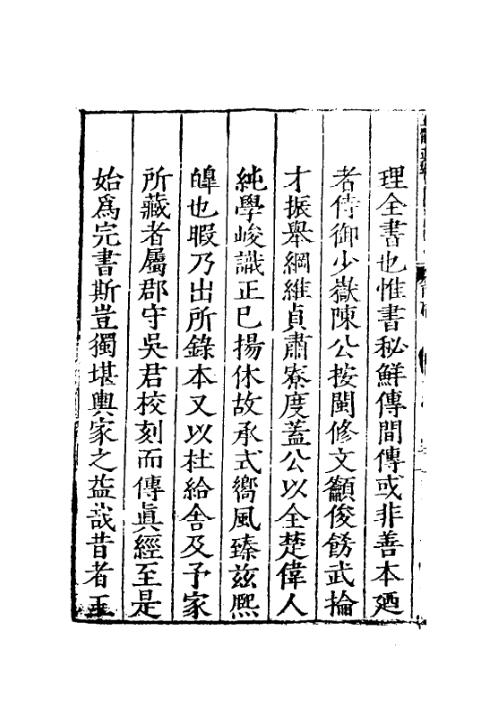 理全書也惟書秘鮮傳間傳或非善本廼
者侍御少嶽陳公按閩修文籲俊餝武掄
才振舉綱維貞肅寮度蓋公以全楚偉人
純學峻識正已揚休故承式嚮風臻茲熈
皡也暇乃出所錄本又以杜給舍及予家
所藏者屬郡守吳君校刻而傳眞經至是
始爲完書斯豈獨堪輿家之益哉昔者王